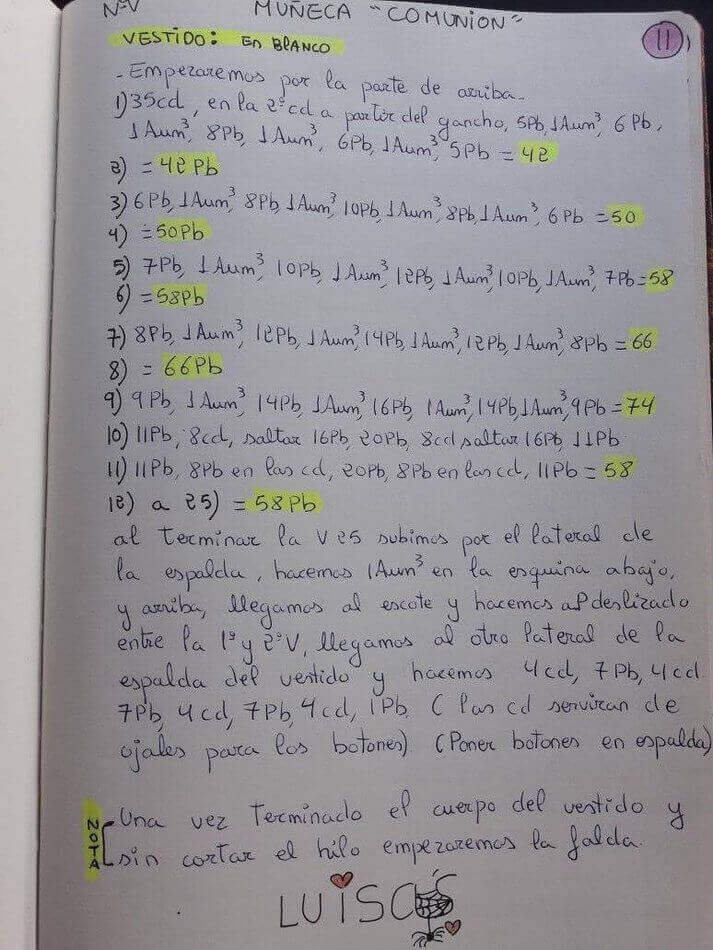 Nº-V
MUÑECA "COMUNION"
11
VESTIDO: EN BLANCO
- Empezaremos por la parte de arriba -
1) 35cd, en la 2ºcd a partir del gancho, 5Pb, 1Aum³, 6Pb,
1Aum³, 8Pb, 1Aum³, 6Pb, 1Aum³, 5Pb = 42
2) = 42Pb
3) 6Pb, 1Aum³, 8Pb, 1Aum³, 10Pb, 1Aum³, 8Pb, 1Aum³, 6Pb = 50
4) = 50Pb
5) 7Pb, 1Aum³, 10Pb, 1Aum³, 12Pb, 1Aum³, 10Pb, 1Aum³, 7Pb = 58
6) = 58Pb
7) 8Pb, 1Aum³, 12Pb, 1Aum³, 14Pb, 1Aum³, 12Pb, 1Aum³, 8Pb = 66
8) = 66Pb
9) 9Pb, 1Aum³, 14Pb, 1Aum³, 16Pb, 1Aum³, 14Pb, 1Aum³, 9Pb = 74
10) 11Pb, 8cd, saltar 16Pb, 20Pb, 8cd saltar 16Pb, 11Pb
11) 11Pb, 8Pb en las cd, 20Pb, 8Pb en las cd, 11Pb = 58
12) a 25) = 58Pb
al terminar la V25 subimos por el lateral de
la espalda, hacemos 1Aum³ en la esquina abajo,
y arriba, llegamos al escote y hacemos 2P deslizado
entre la 1º y 2ºV, llegamos al otro lateral de la
espalda del vestido y hacemos 4cd, 7Pb, 4cd
7Pb, 4cd, 7Pb, 4cd, 1Pb. (las cd serviran de
ojales para los botones) (Poner botones en espalda)
NOTA
Una vez terminado el cuerpo del vestido y
sin cortar el hilo empezaremos la falda.
LUISCUS